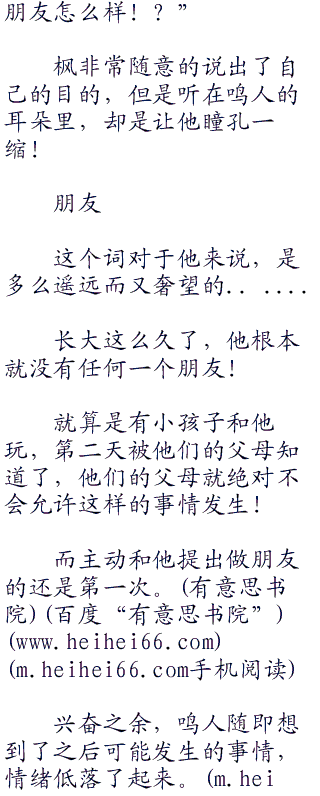 朋友怎么样！？”
枫非常随意的说出了自
己的目的，但是听在鸣人的
耳朵里，却是让他瞳孔一
缩！
朋友
这个词对于他来说，是
多么遥远而又奢望的．．．．．．
长大这么久了，他根本
就没有任何一个朋友！
就算是有小孩子和他
玩，第二天被他们的父母知
道了，他们的父母就绝对不
会允许这样的事情发生！
而主动和他提出做朋友
的还是第一次。(有意思书
院)(百度“有意思书院”)
(www.heihei66.com)
(m.heihei66.com手机阅读)
兴奋之余，鸣人随即想
到了之后可能发生的事情，
情绪低落了起来。(m.hei